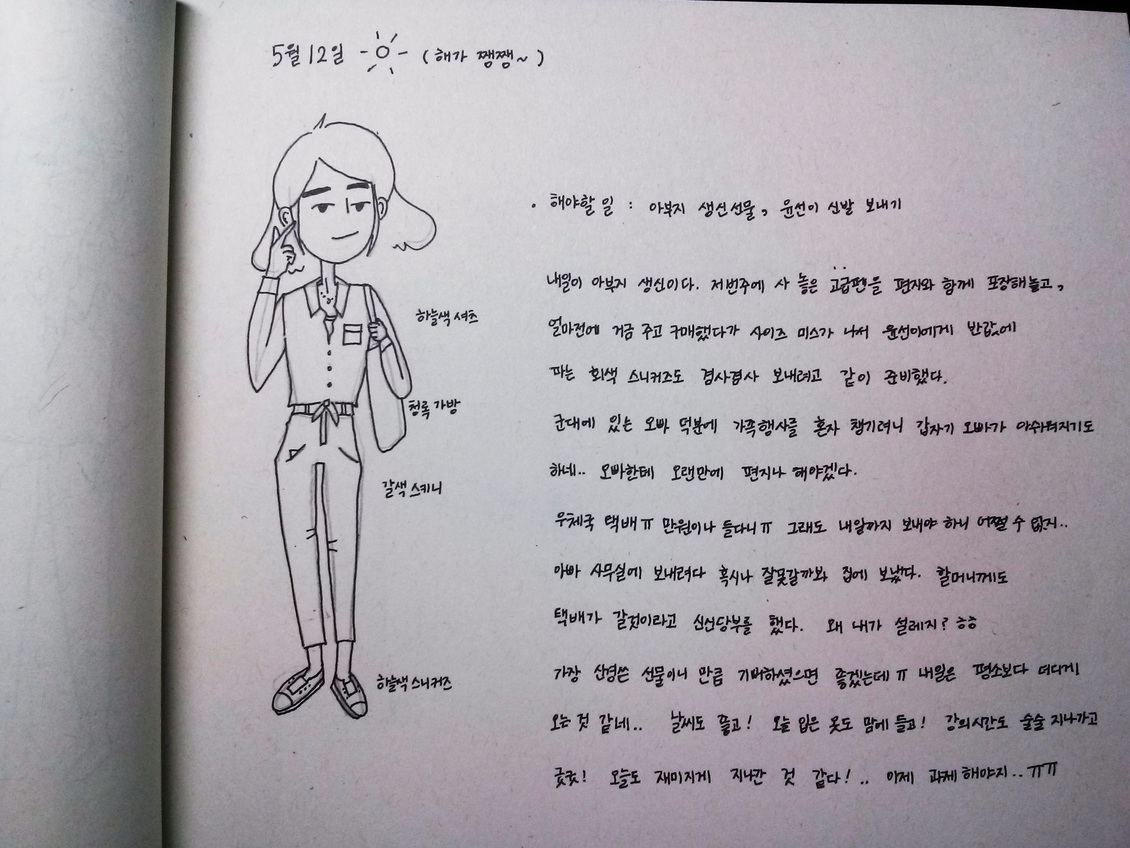 5월 12일 (해가 쨍쨍~)
· 해야할 일 : 아부지 생신선물, 윤선이 신발 보내기
내일이 아부지 생신이다. 저번주에 사 놓은 고급펜을 편지와 함께 포장해놓고,
얼마전에 거금 주고 구매했다가 사이즈 미스가 나서 윤선이에게 반값에
파는 회색 스니커즈도 겸사겸사 보내려고 같이 준비했다.
군대에 있는 오빠 덕분에 가족행사를 혼자 챙기려니 갑자기 오빠가 아쉬워지기도
하네.. 오빠한테 오랜만에 편지나 해야겠다.
우체국 택배ㅠ 만원이나 들다니ㅠ 그래도 내일까지 보내야 하니 어쩔 수 없지..
아빠 사무실에 보내려다 혹시나 잘못갈까봐 집에 보냈다. 할머니께도
택배가 갈것이라고 신신당부를 했다. 왜 내가 설레지? ㅎㅎ
가장 신경쓴 선물이니 만큼 기뻐하셨으면 좋겠는데ㅠ 내일은 평소보다 더디게
오는 것 같네.. 날씨도 좋고! 오늘 입은 옷도 맘에 들고! 강의시간도 술술 지나가고
굿굿! 오늘도 재미지게 지나간 것 같다!.. 이제 과제해야지..ㅠㅠ
하늘색 셔츠
청록 가방
갈색 스키니
하늘색 스니커즈